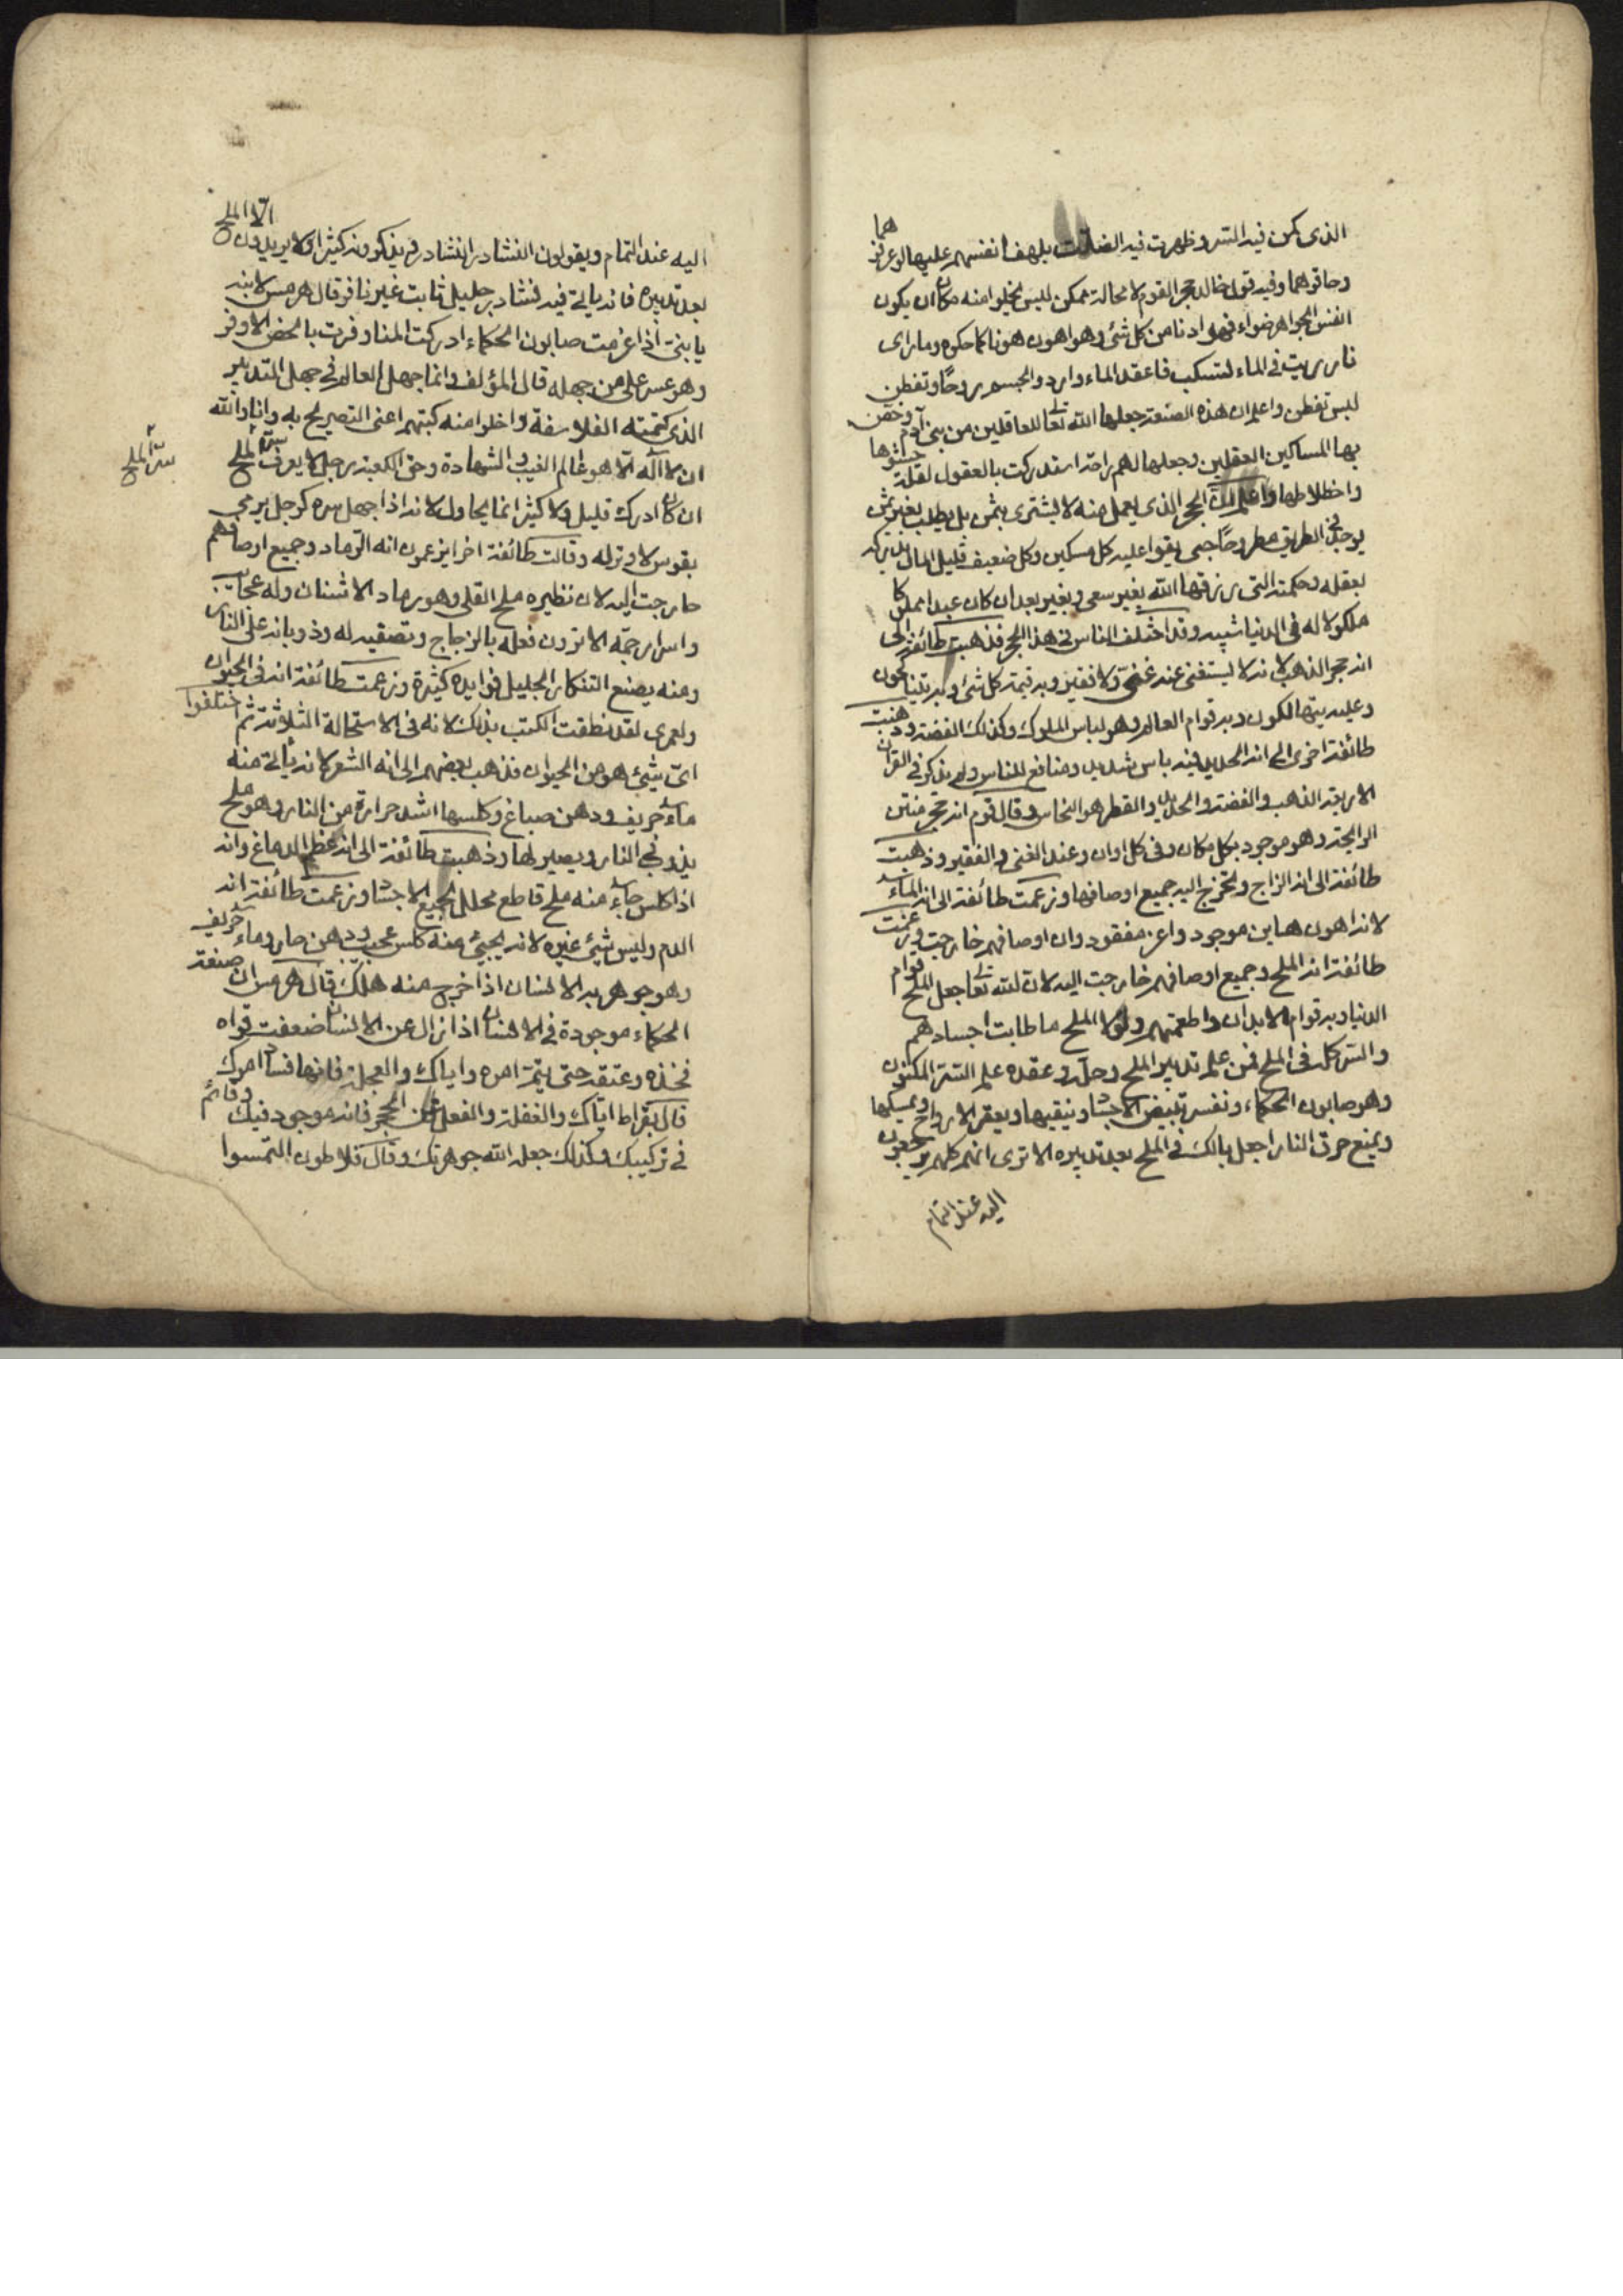 الذى كمن فيه السر وظهرت فيه بلهف انفسهم عليها لو عرفو هما
وحاقوهما وفيه قول خالد حجر القوم لا محالة ممكن ليس يخلوا منه مكان ان يكون
انفس الجواهر ضواء فهو ادنا من كل شئ وهو اهون هونا كما حكوه وما راى
نار ريت فى الماء لتسكب فاعقد الماء وارد والجسم روحا وتفطن
ليس تفطن واعلم ان هذه الصنعة جعلها الله تعالى للعاقلين من بنى آدم وخص
بها المساكين العقلين وجعلها لهم راحة استدركت بالعقول لقلة
واخطلاطها واعلم ان الحجر الذى يعمل منه لا يشترى بثمن بل يطلب بغير ثمن
يوجد فى الطريق مطروحا حتى يقوا عليه كل مسكين وكل ضعيف قليل المال
بعقله وحكمته التى رزقها الله بغير سعى وبغير بعد ان كان عبدا مملوكا
ملكولا له فى الدنيا شبيه وقد اختلف الناس فى هذا الحجر فذهبت طائفة الى
انه حجر الذهب لانه لا يستغنى عنه غنى ولا فقير وبه قيمة كل شئ وبه يتبايعون
وعليه يتنها لكون وبه قوام العالم وهو لباس الملوك وكذلك الفضة وذهبت
طائفة اخرى الى انه الحديد فيه باس شديد ومنافع للناس ولم يذكر فى القران
الاربعة الذهب والفضة والحديد والقطر هو النحاس وقال قوم انه حجر منتن
الرايحة وهو موجود بكل مكان وفى كل اوان وعند الغنى والفقير وذهبت
طائفة الى انه الزاج وتخرج اليه جميع اوصافها وزعمت طائفة الى انه الماء
لانه اهون هاين موجود واعز مفقود وان اوصافهم خارجت وزعمت
طائفة انه الملح وجميع اوصافهم خارجت اليه لان الله تعالى جعل الملح قوام
الدنيا وبه قوام الابدان واطعمتهم ولولا الملح ما طابت اجسادهم
والسر كل فى الملح فمن علم تدبير الملح وحله وعقده علم السر المكنون
وهو صابون الحكماء ونفسه تبيض الاجساد وينقيها ويعقر الارواح ويمسكها
ويمنع حرق النار اجعل بالك فى الملح بعد تدبيره الا ترى انهم كلهم يرجعون
اليه عند التمام
اليه عند التمام ويقولون النشادر النشادر ويذكرونه كثيرا ولا يريدون الا الملح
بعد تدبيره فانه ياتى فيه نشادر جليل ثابت غير نافر قال هرمس لابنه
يا بنى اذا عرفت صابون الحكماء ادركت المنا وفزت بالحض الاوفر
وهو عسر على من جهله قال المؤلف وانما جهل العالم فى جهل التدبير
الذى كتمته الفلاسفة واخلوا منه كتبهم اعنى التصريح به وانا والله
ان لا اله الا هو عالم الغيب والشهادة وحق الكعبة رجل لا يعرف سر الملح
سر الملح
ان كان ادرك قليل ولا كثير انما يحاول لانه اذا جهل سره كرجل يرمى
بقوس لا وتر له وقالت طائفة اخرا يزعمون انه الرماد وجميع اوصافهم
خارجت اليه لان نظيره ملح القلى وهو رماد الاشنان وله عجائب
واسرار جمه الا ترون فعله بالزجاج وتصفيه له وذوبانه على النار
ومنه يصنع التنكار الجليل فوايده كثيرة وزعمت طائفة انه فى الحيوان
ولعمرى لقد نطقت الكتب بذلك لانه فى الاستحالة الثلاثة ثم اختلفوا
اى شيئ هو من الحيوان فذهب بعضهم الى انه الشعر لانه ياتى منه
ماء حريف ودهن صباغ وكلسها اشد حرارة من النار وهو ملح
يذوب فى النار ويصبر لها وذهبت طائفة الى انه عظم الدماغ وانه
اذا كلس جاء منه ملح قاطع محلل لجميع الاجساد وزعمت طائفة انه
الدم وليس شيئ غيره لانه يجيئ منه كلس عجيب ودهن حار وماء حريف
وهو جوهر به الانسان اذا خرج منه هلك قال هرمس ان صنعة
الحكماء موجودة فى الانسان اذا زال عن الانسان ضعفت قواه
فخذه وعتقه حتى يتم امره واياك والعجلة فانها فساد امرك
قال بقراط اياك والغفلة والفعل عن الحجر فانه موجود فيك وقائم
فى تركيبك وكذلك جعله الله جوهرتك وقال فلاطون التمسوا